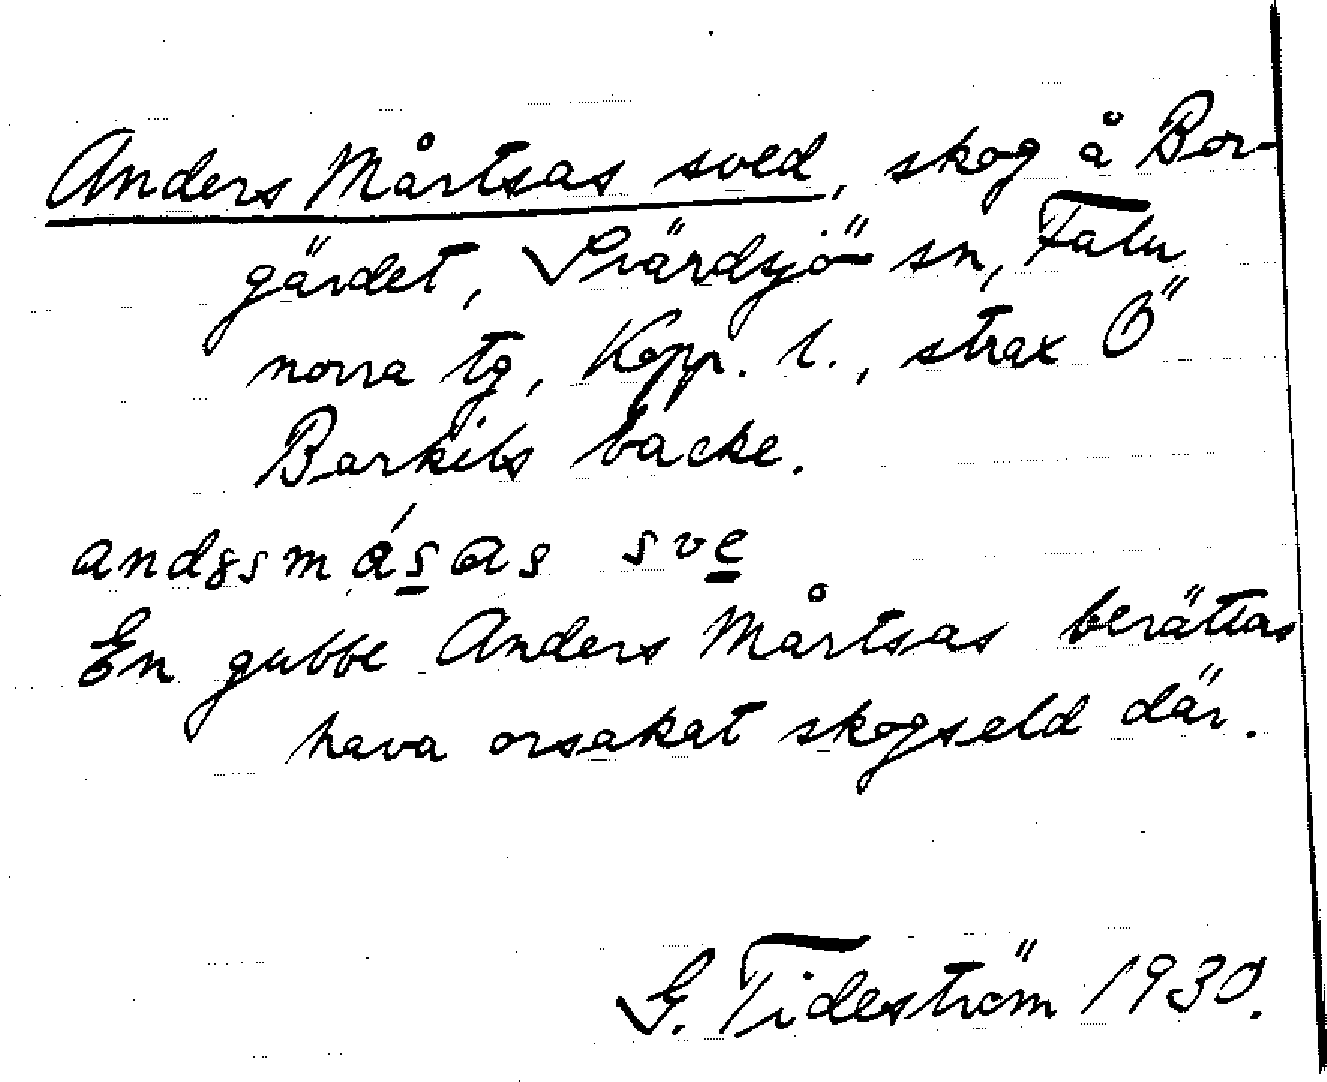 Anders Mårtsas sved, skog å Bor-
gärdet, Svärdsjö sn, Falu
norra tg, Kopp. l., strax Ö
Barkils backe.
andssmásas sve
En gubbe Anders Mårtsas berättas
hava orsakat skogseld där.
G. Tideström 1930.